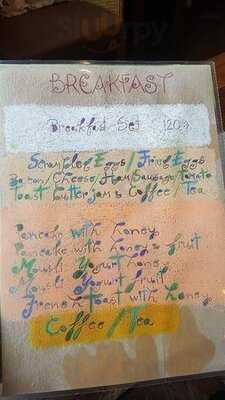 BREAKFAST
Breakfast Set 120
Scrambled Eggs / Fried Eggs
Bacon / Cheese / Ham Sausage / Tomato
Toast butter jam & Coffee / Tea
Pancake with honey
Pancake with honey & fruit
Muesli Yogurt honey
Muesli Yogurt Fruit
French Toast with honey
Coffee / Tea